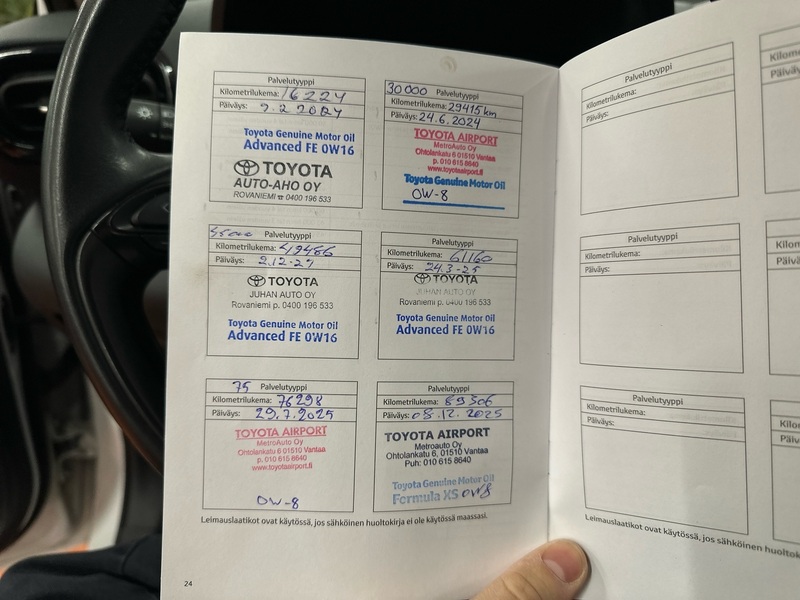 Palvelutyyppi
Kilometrilukema: 16224
Päiväys: 9.2 2024
Toyota Genuine Motor Oil
Advanced FE 0W16
TOYOTA
AUTO-AHO OY
ROVANIEMI ☎ 0400 196 533
30000 Palvelutyyppi
Kilometrilukema: 29415 km
Päiväys: 24.6.2024
TOYOTA AIRPORT
MetroAuto Oy
Ohtolankatu 6 01510 Vantaa
p. 010 615 8640
www.toyotaairport.fi
Toyota Genuine Motor Oil
0W-8
Palvelutyyppi
Kilometrilukema: 49486
Päiväys: 2.12-24
TOYOTA
JUHAN AUTO OY
Rovaniemi p. 0400 196 533
Toyota Genuine Motor Oil
Advanced FE 0W16
Palvelutyyppi
Kilometrilukema: 61160
Päiväys: 24.3-25
TOYOTA
JUHAN AUTO OY
Rovaniemi p. 0400 196 533
Toyota Genuine Motor Oil
Advanced FE 0W16
75 Palvelutyyppi
Kilometrilukema: 76298
Päiväys: 29.7.2025
TOYOTA AIRPORT
MetroAuto Oy
Ohtolankatu 6 01510 Vantaa
p. 010 615 8640
www.toyotaairport.fi
0W-8
Palvelutyyppi
Kilometrilukema: 89306
Päiväys: 08.12.2025
TOYOTA AIRPORT
MetroAuto Oy
Ohtolankatu 6, 01510 Vantaa
Puh: 010 615 8640
Toyota Genuine Motor Oil
Formula XS 0W8
Leimauslaatikot ovat käytössä, jos sähköinen huoltokirja ei ole käytössä maassasi.
24
Palvelutyyppi
Kilometrilukema:
Päiväys:
Palvelutyyppi
Kilometrilukema:
Päiväys:
Palvelutyyppi
Kilometrilukema:
Päiväys:
Leimauslaatikot ovat käytössä, jos sähköinen
Kilome
Päiväy
Kilom
Päivä
Kilo
Päiv